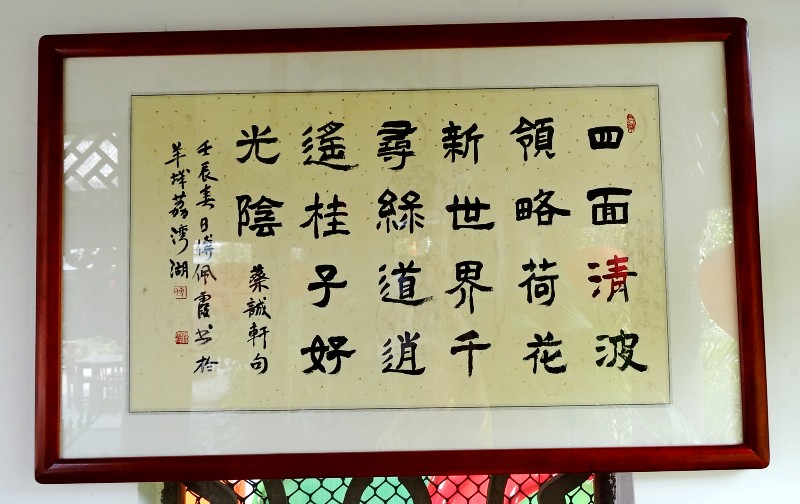 四面清波
領略荷花
新世界千
尋綠道逍
遙桂子好
光陰
蔡誠軒句
壬辰春日傅佩霞书於
羊城荔灣湖